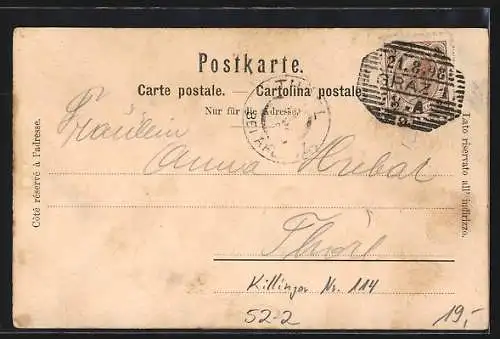 Postkarte.
Carte postale. — Cartolina postale.
Nur für die Adresse.
Côté réservé à l'adresse.
Lato riservato all' indirizzo.
21.8.98
GRAZ 1
THÖRL
BEI AFL
Fräulein
Anna Hubal
Thörl
Killinger Nr. 114
52-2
19,-